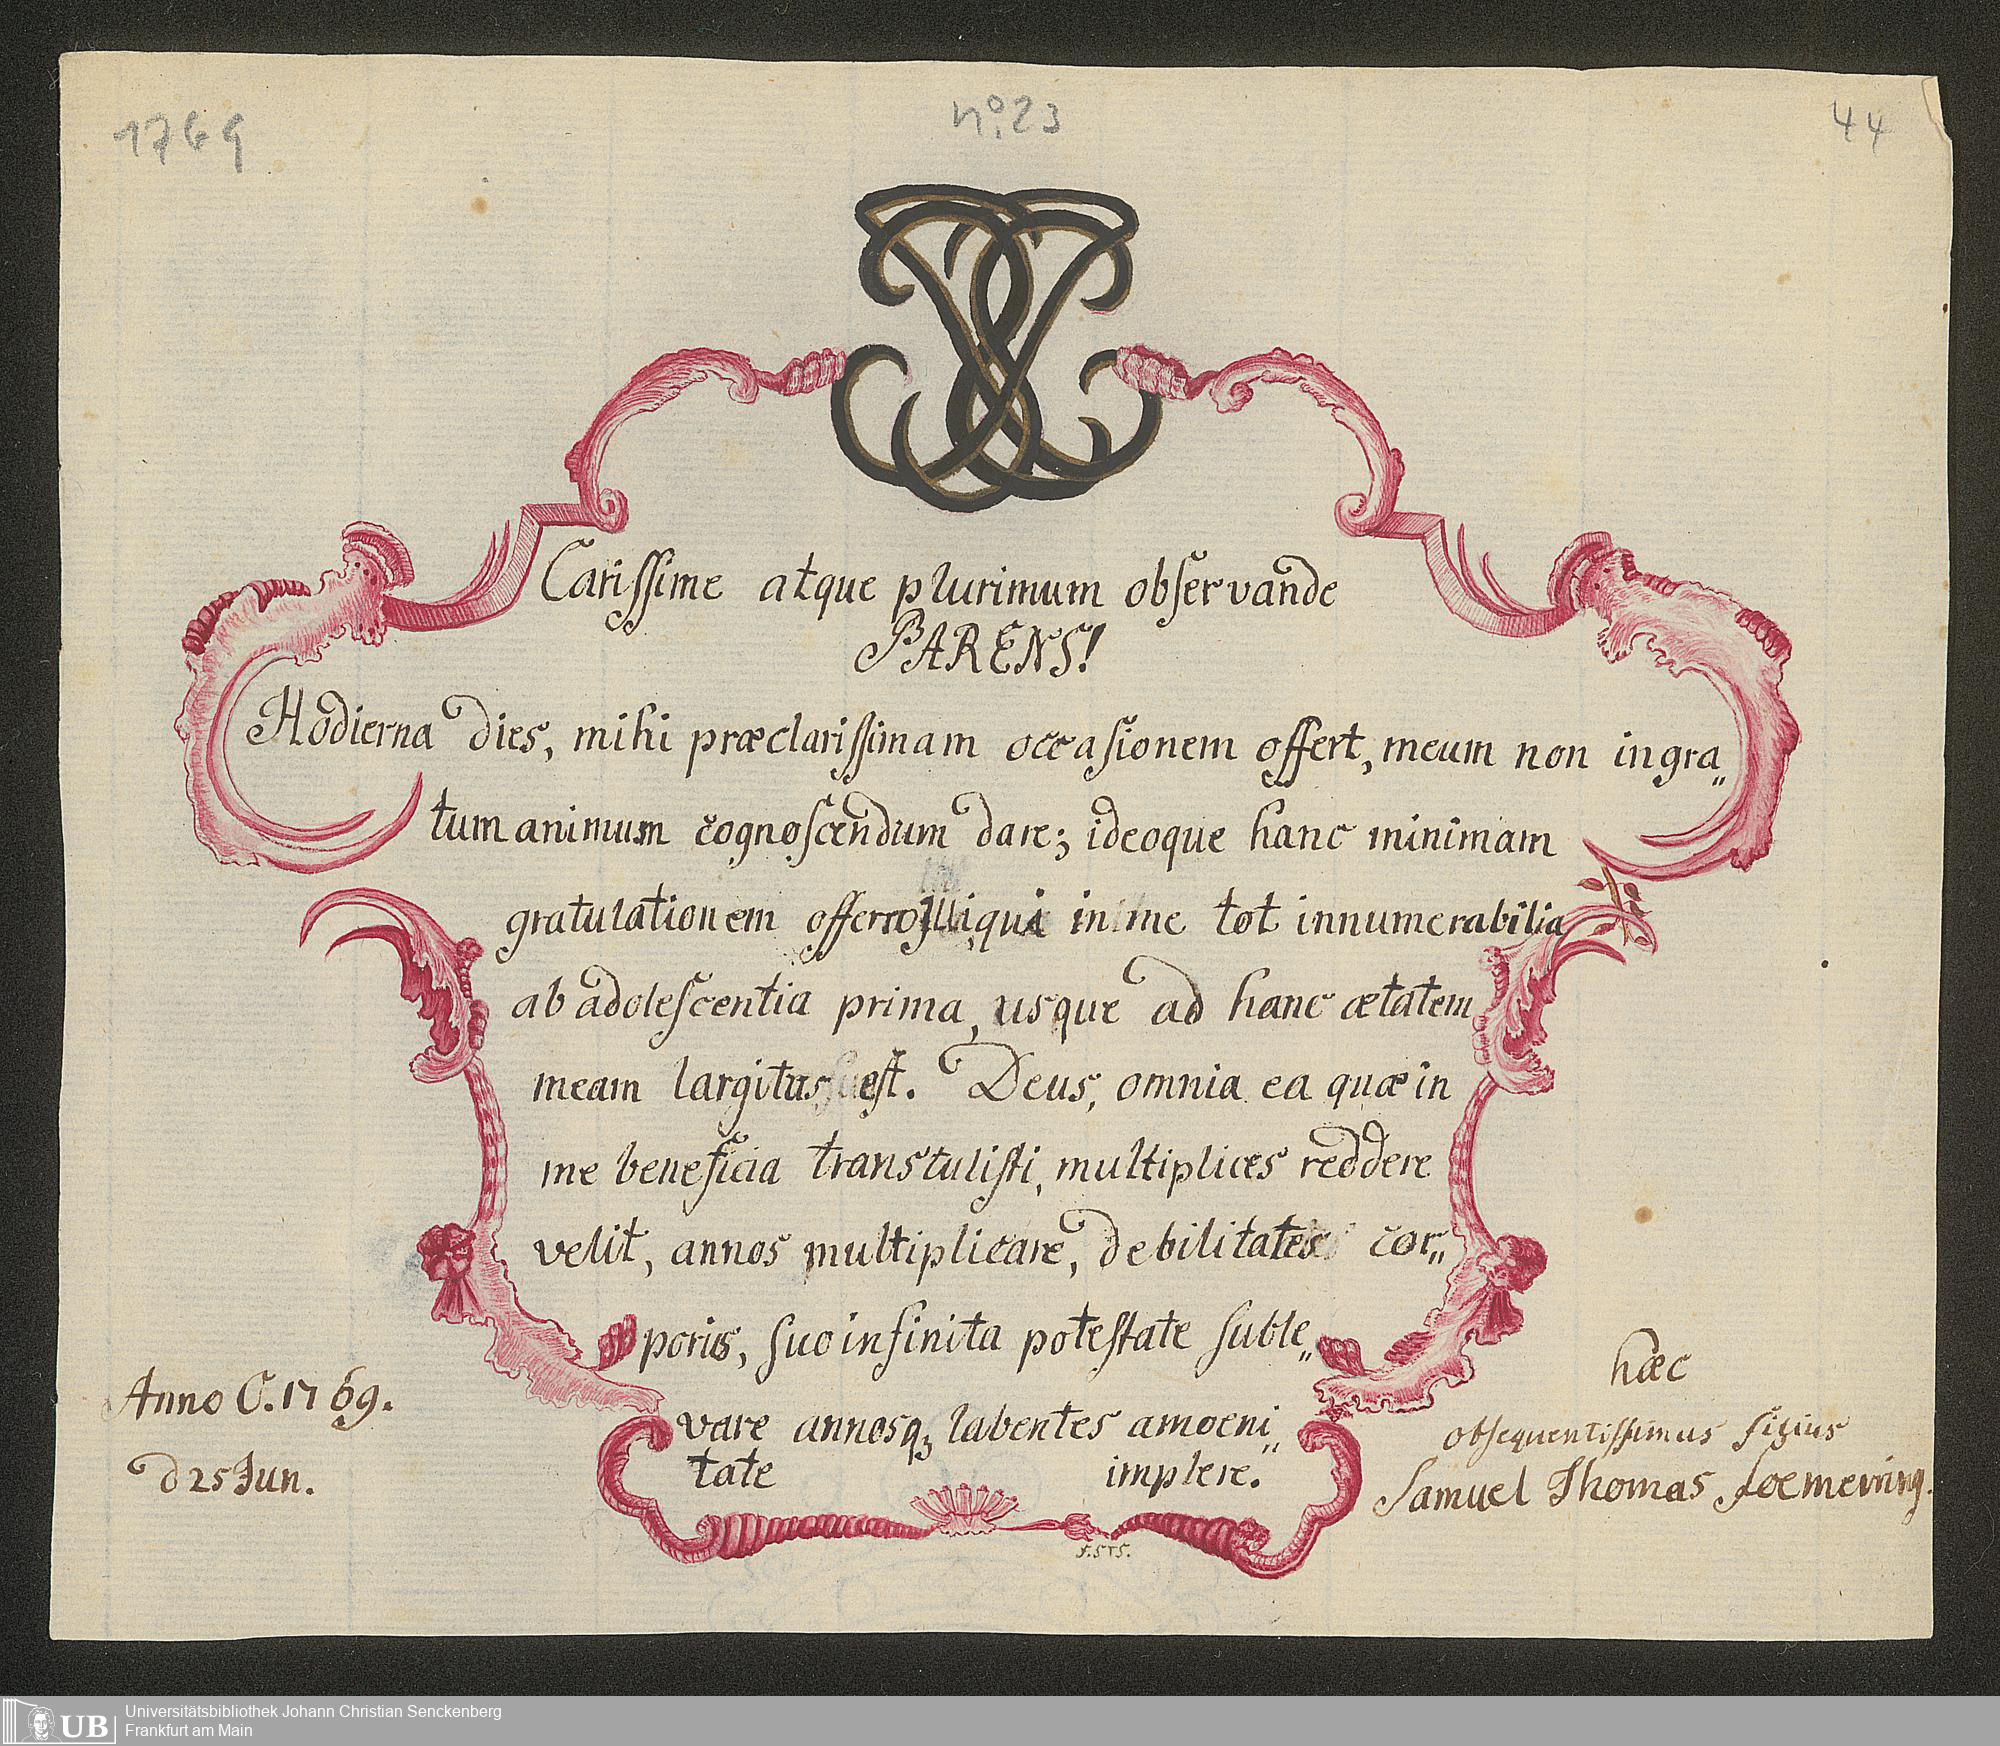 1769
no. 23
44
Carissime atque plurimum observande
PARENS!
Hodierna dies, mihi præclarissimam occasionem offert, meum non ingra„
tum animum cognoscendum dare; ideoque hanc minimam
gratulationem offerro Illi, qui in me tot innumerabilia
ab adolescentia prima, usque ad hanc ætatem
meam largitus est. Deus, omnia ea quæ in
me beneficia transtulisti, multiplices reddere
velit, annos multiplicare, debilitates cor„
poris, suo infinita potestate suble„
vare annosq; labentes amoeni„
tate implere.
Anno C. 1769.
d 25 Jun.
hæc
obsequentissimus filius
Samuel Thomas Soemerring.
F. STS.
UB
Universitätsbibliothek Johann Christian Senckenberg
Frankfurt am Main